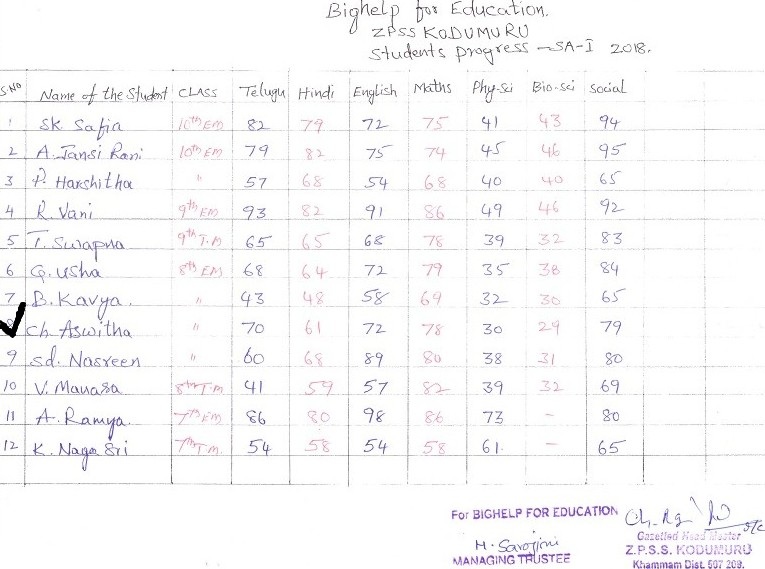 Bighelp for Education.
ZPSS KODUMURU
Students progress - SA-I 2018.
S.NO Name of the Student CLASS Telugu Hindi English Maths Phy-sci Bio-sci Social
1 SK. Safia 10th EM 82 79 72 75 41 43 94
2 A. Jansi Rani 10th EM 79 82 75 74 45 46 95
3 P. Harshitha " 57 68 54 68 40 40 65
4 R. Vani 9th EM 93 82 91 86 49 46 92
5 T. Swapna 9th T.M 65 65 68 78 39 32 83
6 G. Usha 8th EM 68 64 72 79 35 38 84
7 B. Kavya. " 43 48 58 69 32 30 65
Ch. Aswitha " 70 61 72 78 30 29 79
9 Sd. Nasreen " 60 68 89 80 38 31 80
10 V. Manasa 8th T.M 41 59 57 82 39 32 69
11 A. Ramya. 7th EM 86 80 98 86 73 - 80
12 K. Naga Sri 7th T.M. 54 58 54 58 61. - 65
For BIGHELP FOR EDUCATION
H. Sarojini
MANAGING TRUSTEE
Gazetted Head Master
Z.P.S.S. KODUMURU
Khammam Dist. 507 209.